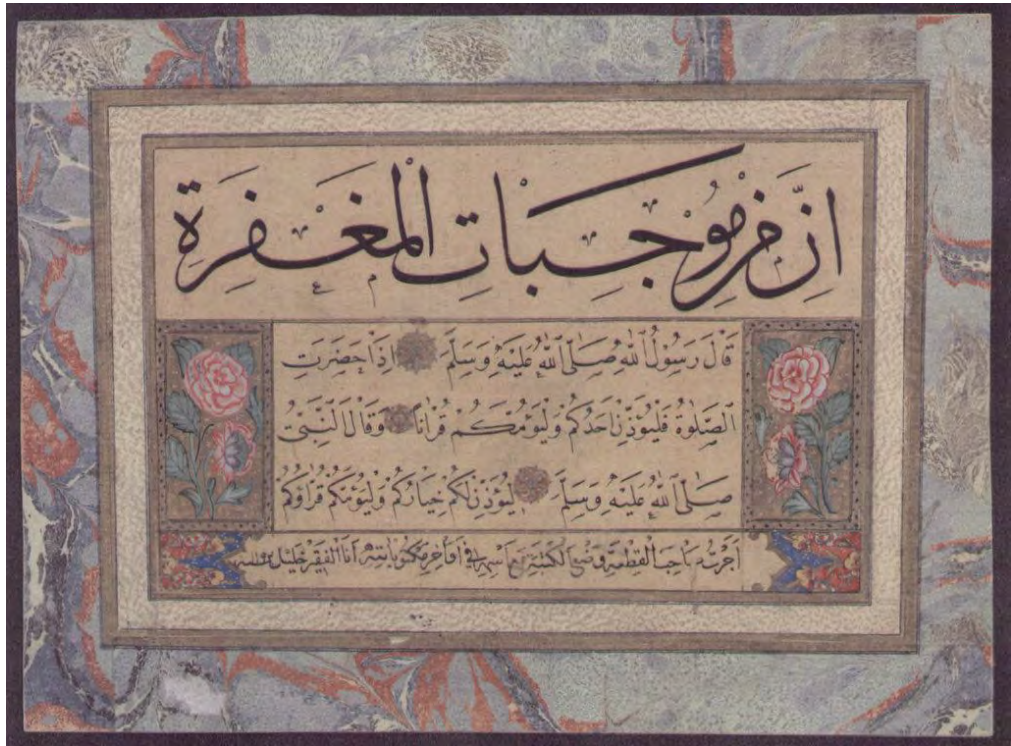 اِنَّ مِنْ مُوْجِبَاتِ الْمَغْفِرَةِ
قَالَ رَسُولُ اللّٰهِ صَلَّى اللّٰهُ عَلَيْهِ وَسَلَّمَ اِذَا حَضَرَتِ
الصَّلٰوةُ فَلْيُؤَذِّنْ اَحَدُكُمْ وَلْيَؤُمَّكُمْ قُرْاٰنًا وَقَالَ النَّبِىُّ
صَلَّى اللّٰهُ عَلَيْهِ وَسَلَّمَ لِيُؤَذِّنْ لَكُمْ خِيَارُكُمْ وَلْيَؤُمَّكُمْ قُرَّاؤُكُمْ
اجزته صاحب القطعة وضع الكتبة انا الفقير خليل